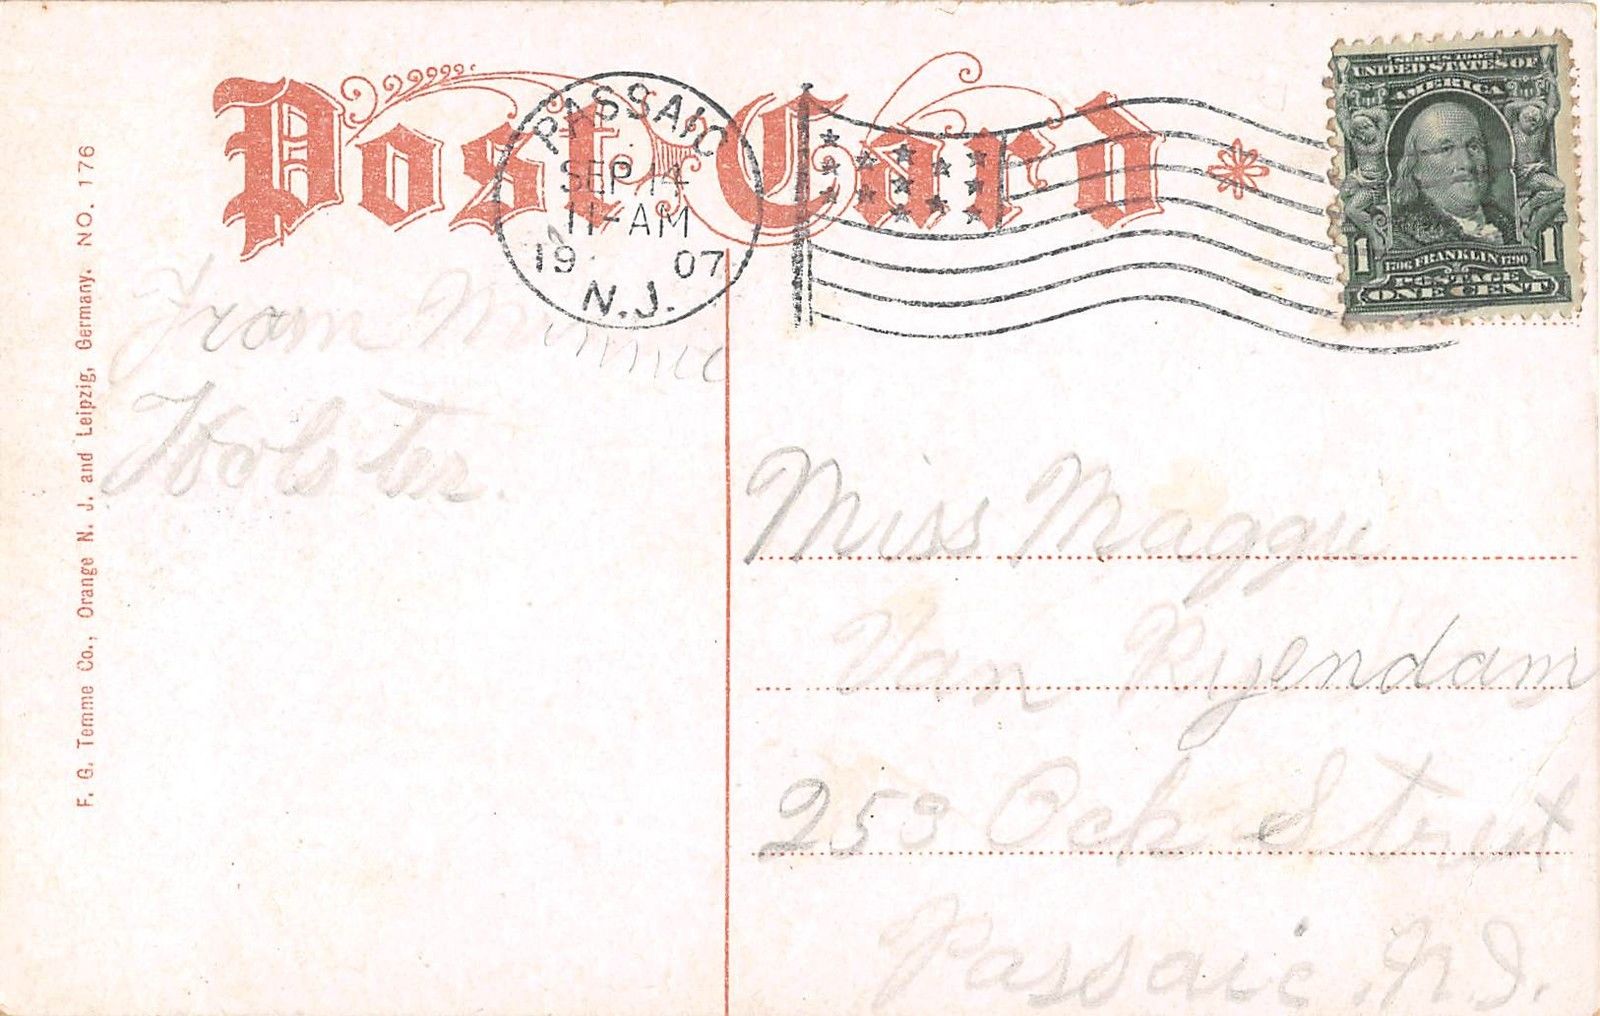 Post Card
PASSAIC
SEP 14
11-AM
19 07
N.J.
SERIES 1902
UNITED STATES OF
AMERICA
1 1706 FRANKLIN 1790 1
POSTAGE
ONE CENT
From Minnie
Holster.
Miss Maggie
Van Ryendam
253 Ock Street
Passaic. N.J.
F. G. Temme Co., Orange N. J. and Leipzig, Germany. NO. 176